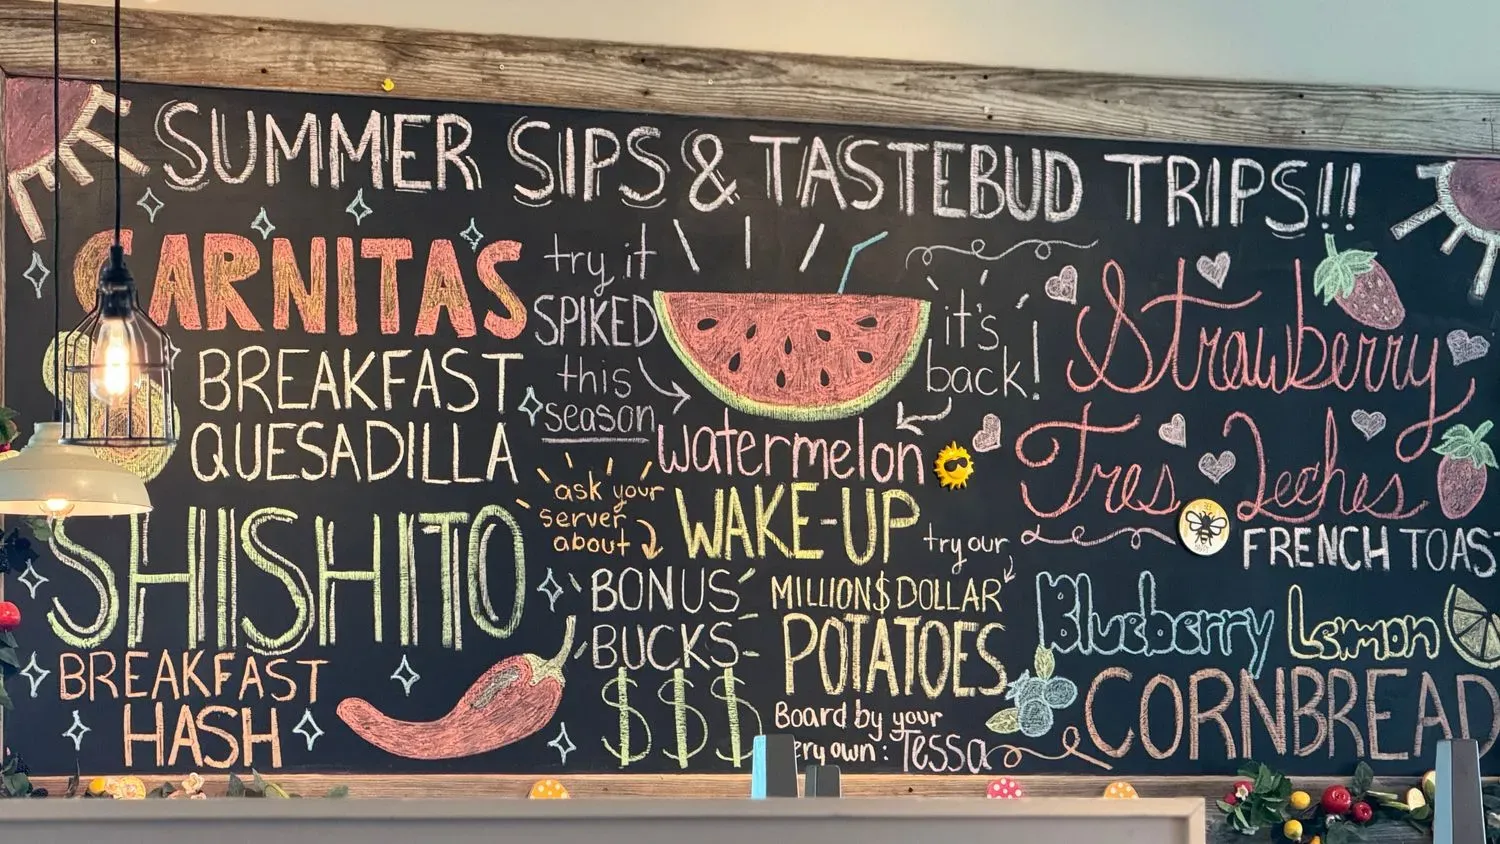 SUMMER SIPS & TASTEBUD TRIPS!!
CARNITAS
BREAKFAST
QUESADILLA
SHISHITO
BREAKFAST
HASH
try it
SPIKED
this
season
it's
back!
watermelon
WAKE-UP
ask your
server
about
BONUS
BUCKS
$$$
try our
MILLION$ DOLLAR
POTATOES
Board by your
ery own: Tessa
Strawberry
Tres Leches
FRENCH TOAS
Blueberry Lemon
CORNBREAD